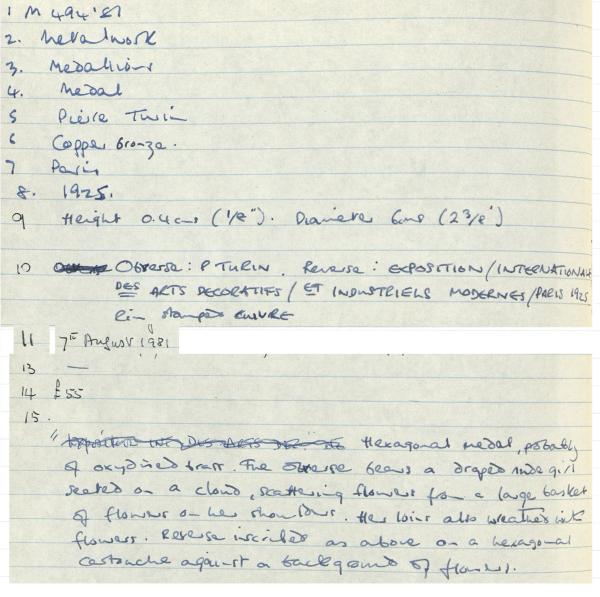 1 M 494 '81
2. Metalwork
3. Medallions
4. Medal
5 Pierre Turin
6 Copper bronze.
7 Paris
8. 1925.
9 Height 0.4cms (1/8"). Diameter 6cms (2 3/8")
10 Obverse: P TURIN. Reverse: EXPOSITION/INTERNATIONALE
DES ARTS DECORATIFS/ET INDUSTRIELS MODERNES/PARIS 1925
Rim stamped CUIVRE
11 7TH August 1981
13 —
14 £55
15.
" Hexagonal medal, probably
of oxydised brass. The obverse bears a draped nude girl
seated on a cloud, scattering flowers from a large basket
of flowers on her shoulders. Her loins also wreathed with
flowers. Reverse inscribed as above on a hexagonal
cartouche against a background of flowers.